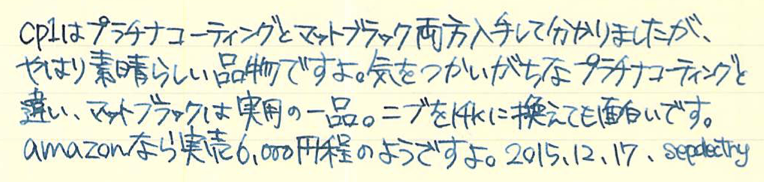 cp1はプラチナコーティングとマットブラック両方入手して分かりましたが、
やはり素晴らしい品物ですよ。気をつかいがちなプラチナコーティングと
違い、マットブラックは実用の一品。ニブを14kに換えても面白いです。
amazonなら実売6,000円程のようですよ。2015.12.17、